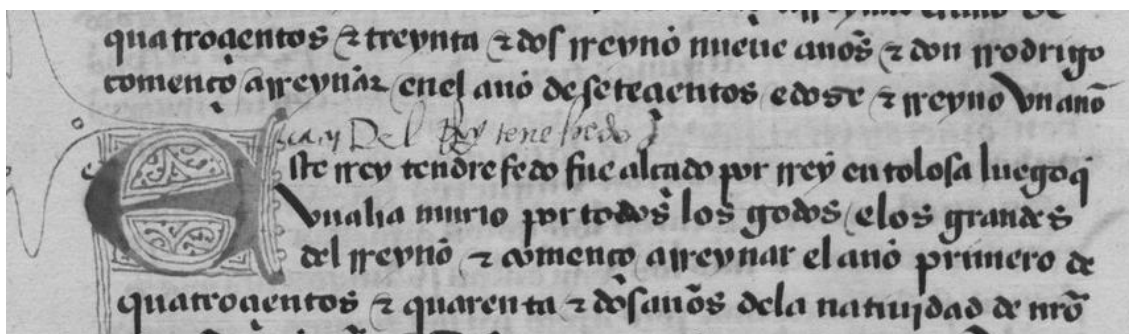 quatroçentos & treynta & dos rreyno nueue años & don rrodrigo
començo a rreynar en el año de seteçentos e dose & rreyno vn año
Del Rey tenefredo
Este rrey tendrefedo fue alçado por rrey en tolosa luego q̃
vualia murio por todos los godos e los grandes
del rreyno & començo a rreynar el año primero de
quatroçentos & quarenta & dos años dela natiuidad de nr̃o